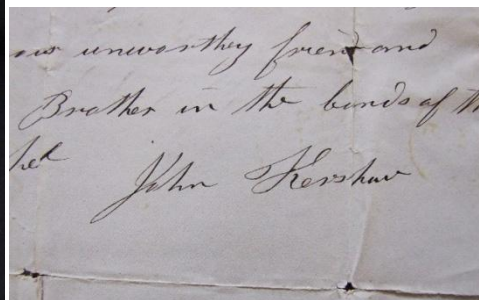 unworthey friend and
Brother in the bonds of th
John Kershaw